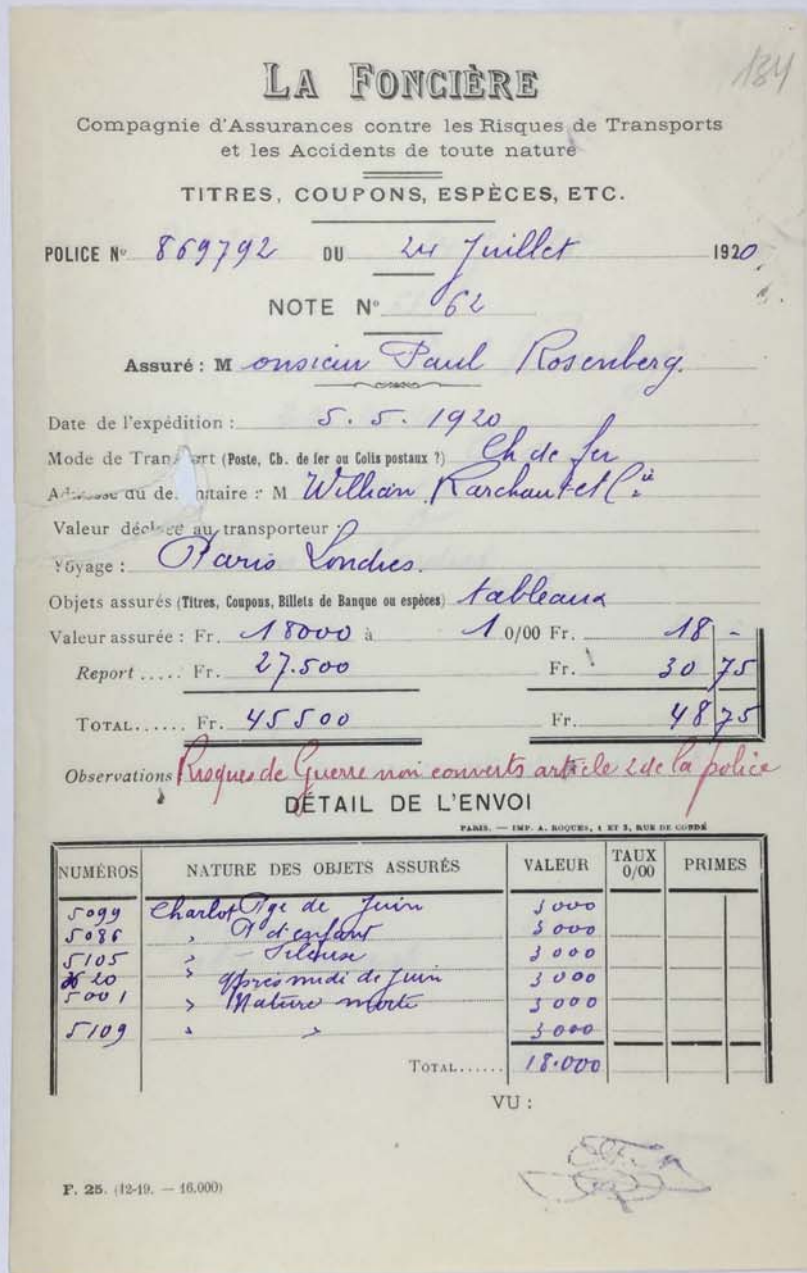 184
LA FONCIÈRE
Compagnie d'Assurances contre les Risques de Transports
et les Accidents de toute nature
TITRES, COUPONS, ESPÈCES, ETC.
POLICE N° 869792 DU 24 Juillet 1920
NOTE N° 62
Assuré : Monsieur Paul Rosenberg.
Date de l'expédition : 5. 5. 1920
Mode de Transport (Poste, Ch. de fer ou Colis postaux ?) Ch de fer
du destinataire : M William et Cie
Valeur déclarée au transporteur :
Voyage : Paris Londres.
Objets assurés (Titres, Coupons, Billets de Banque ou espèces) tableaux
Valeur assurée : Fr. 18000 à 1 0/00 Fr. 18 -
Report ..... Fr. 27.500 Fr. 30 75
TOTAL...... Fr. 45500 Fr. 48 75
Observations Risques de Guerre non couverts article 2 de la police
DÉTAIL DE L'ENVOI
PARIS. — IMP. A. ROQUES, 1 ET 3, RUE DE CONDÉ
NUMÉROS NATURE DES OBJETS ASSURÉS VALEUR TAUX 0/00 PRIMES
5099 Charlot de Juin 3000
5086 " d'enfant 3000
5105 " - Fileuse 3000
20 " après midi de Juin 3000
5001 " Nature morte 3000
5109 " " 3000
TOTAL...... 18.000
VU :
F. 25. (12-19. — 16.000)